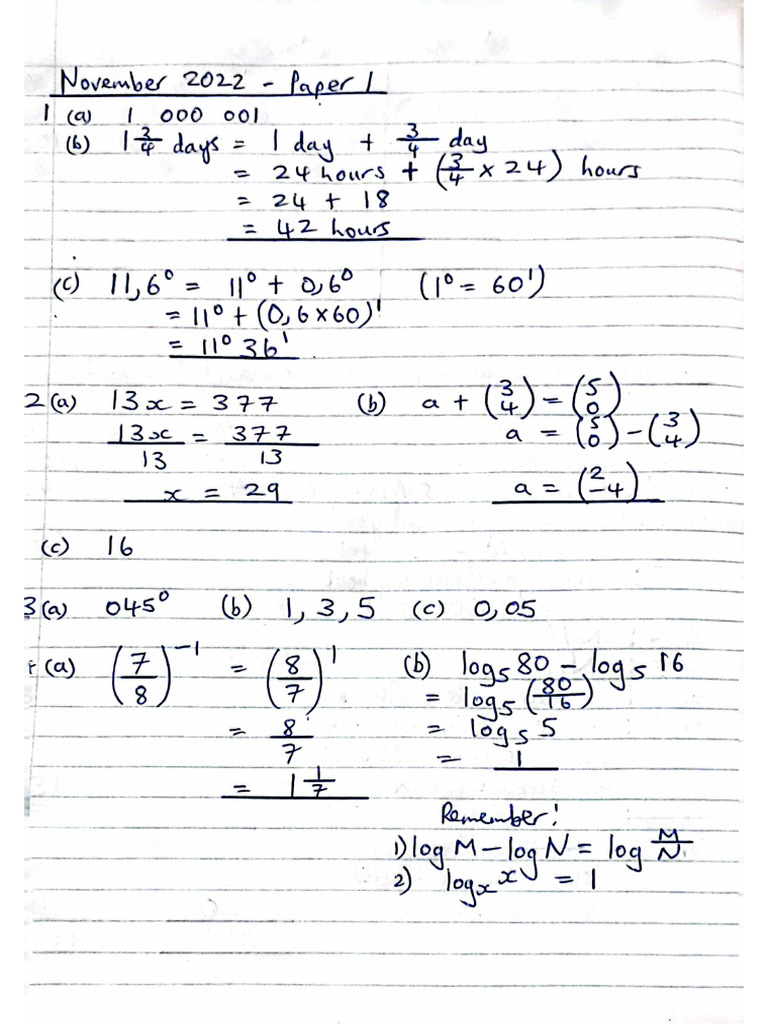 November 2022 - Paper 1
1 (a) 1 000 001
(b) 1 3/4 days = 1 day + 3/4 day
= 24 hours + (3/4 × 24) hours
= 24 + 18
= 42 hours
(c) 11,6° = 11° + 0,6° (1° = 60')
= 11° + (0,6 × 60)'
= 11° 36'
2 (a) 13x = 377 (b) a + (3 4) = (5 0)
13x/13 = 377/13 a = (5 0) - (3 4)
x = 29 a = (2 -4)
(c) 16
3 (a) 045° (b) 1, 3, 5 (c) 0,05
(a) (7/8)⁻¹ = (8/7)¹ (b) log₅ 80 - log₅ 16
= 8/7 = log₅ (80/16)
= 1 1/7 = log₅ 5
= 1
Remember!
1) log M - log N = log M/N
2) logₓ x = 1